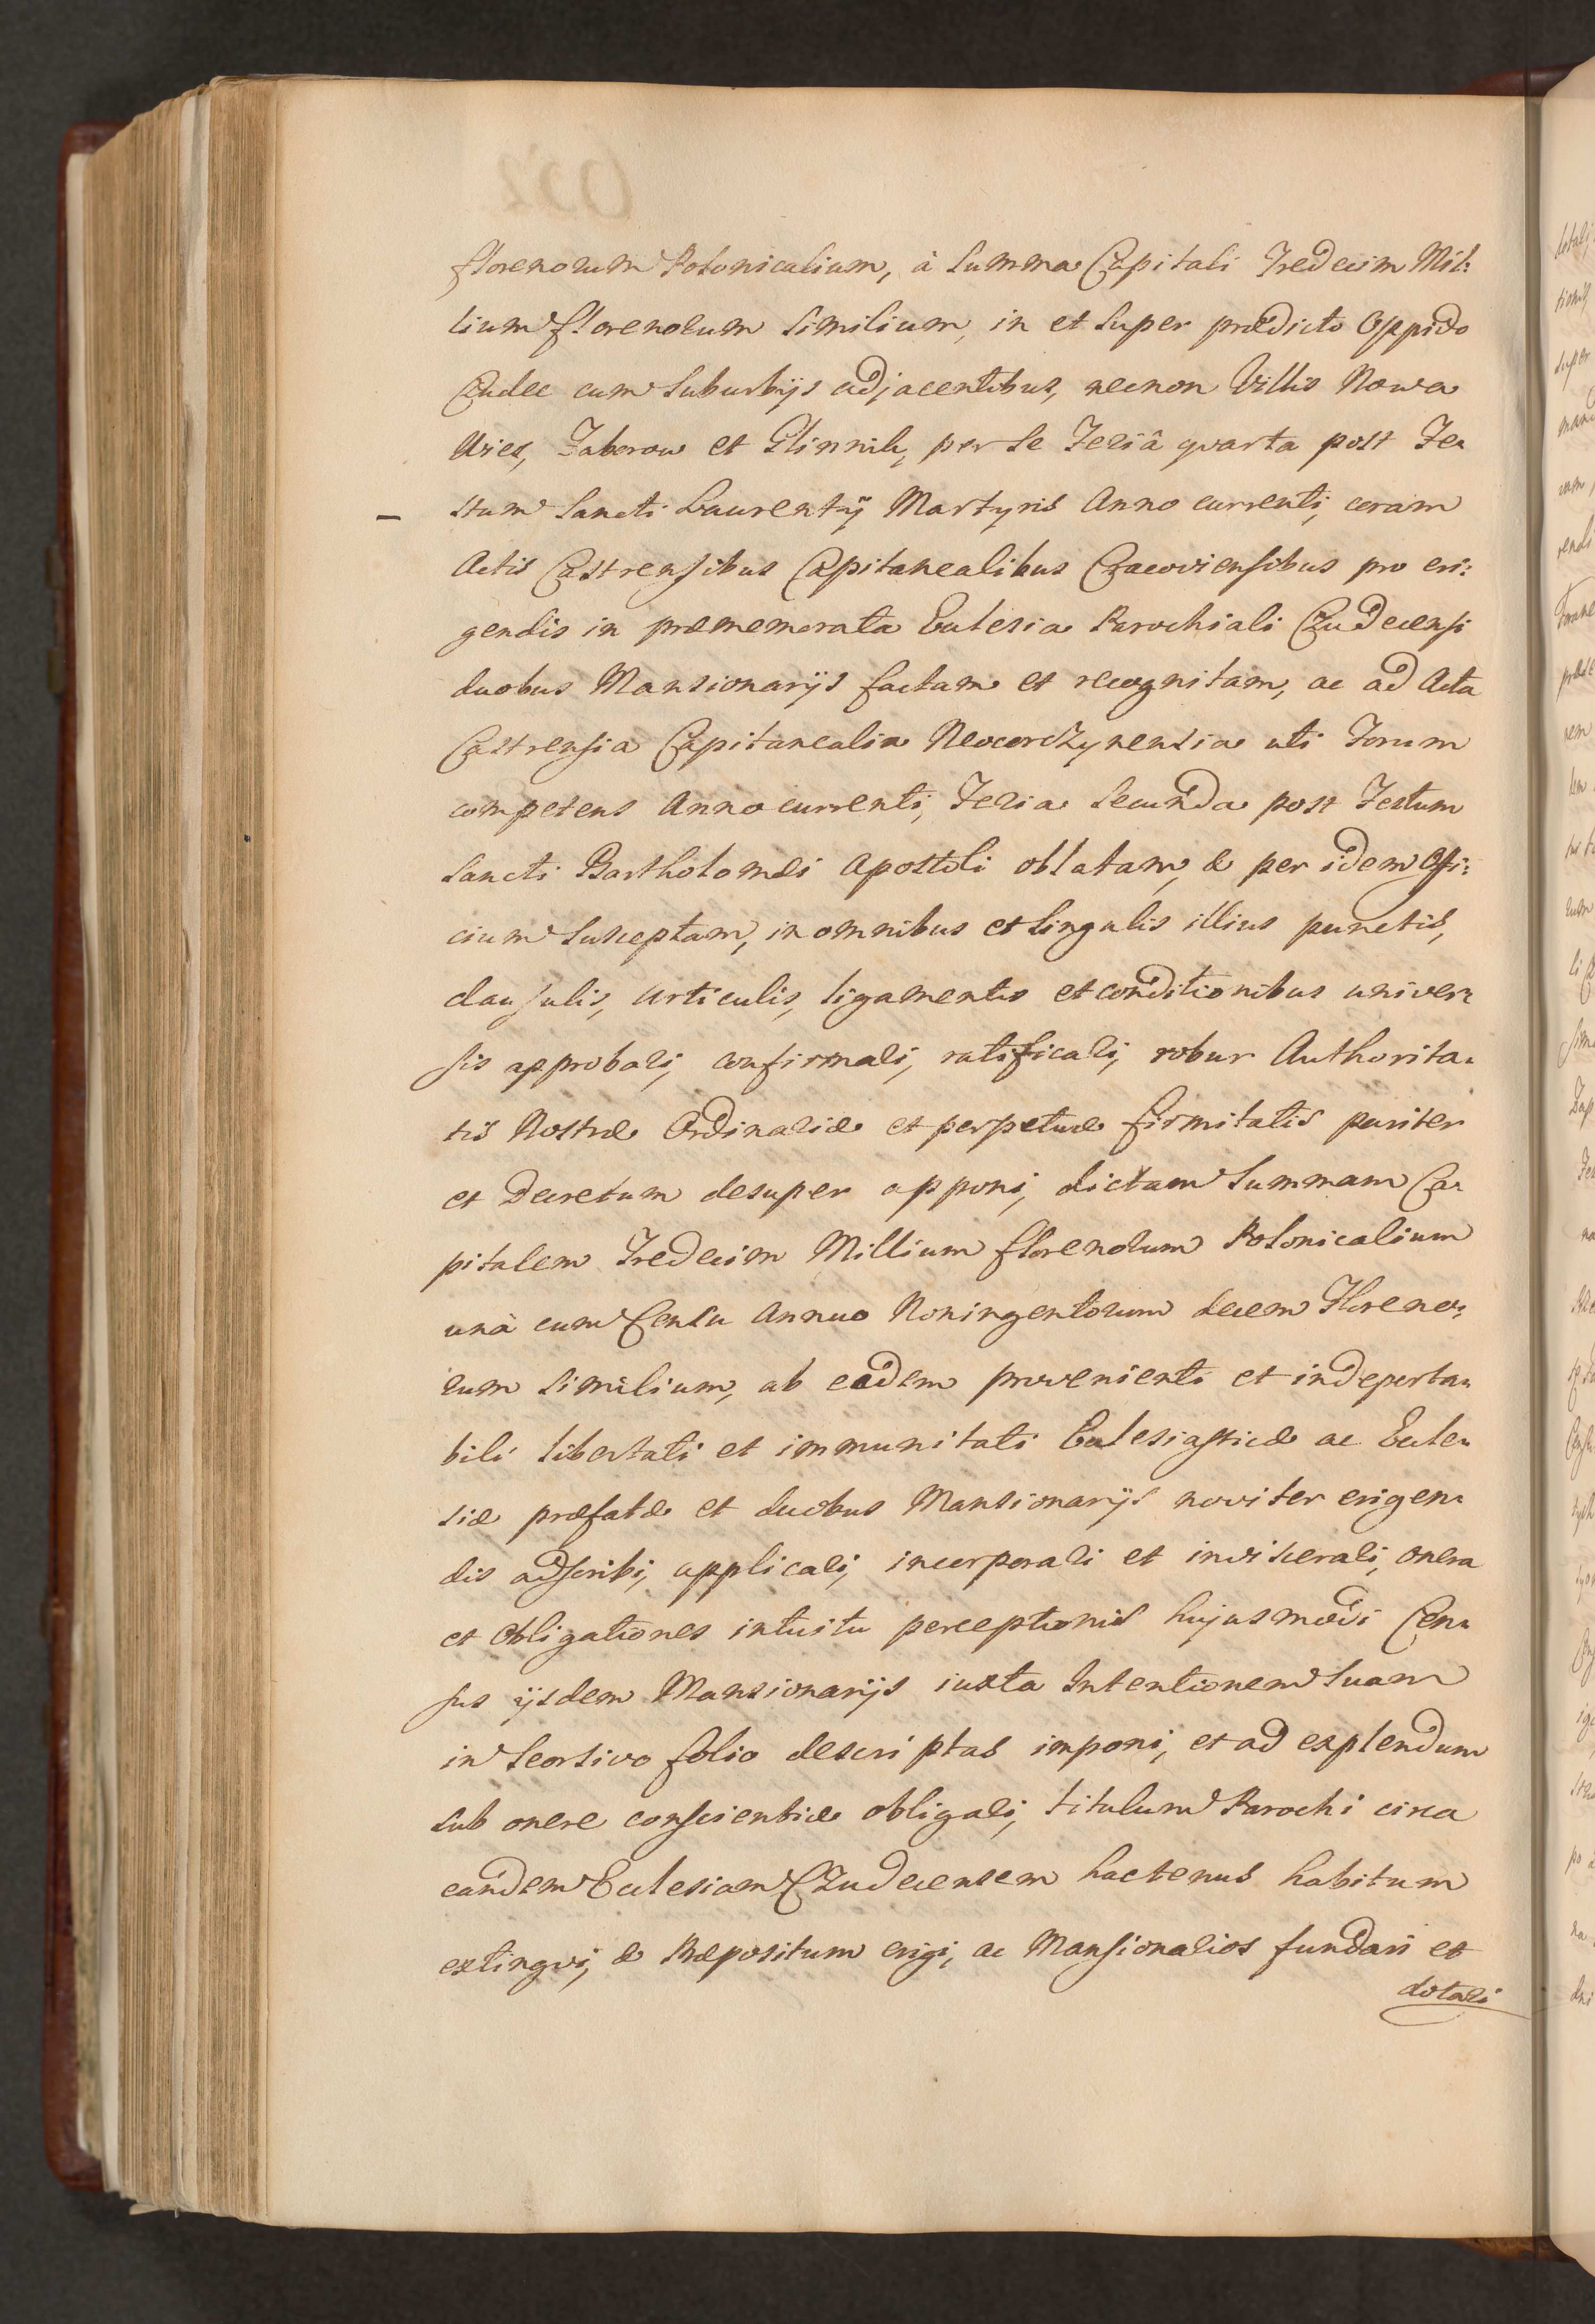 florenorum Polonicalium, à Summa Capitali Tredecim Mil:
lium florenorum Similium, in et Super prædicto Oppido
Czudec cum Suburbijs adjacentibus, necnon Villis Nowa
Wies, Zaborow et Glinnik, per Se Feriâ quarta post Fe=
stum Sancti Laurentij Martyris Anno currenti, coram
Actis Castrensibus Capitanealibus Cracoviensibus pro eri:
gendis in præmemorata Ecclesia Parochiali Czudecensi
duobus Mansionarijs factam et recognitam, ac ad Acta
Castrensia Capitanealia Neocorczynensia uti Forum
competens Anno currenti, Feria Secunda post Festum
Sancti Bartholomæi Apostoli oblatam, & per idem Offi:
cium Susceptam, in omnibus et Singulis illius punctis,
clausulis, articulis, ligamentis et conditionibus univer=
sis approbari, confirmari, ratificari, robur Authorita=
tis Nostræ Ordinariæ et perpetuæ firmitatis pariter
et Decretum desuper apponi, dictam Summam Ca=
pitalem Tredecim Millium florenorum Polonicalium
unà cum Censu Annuo Noningentorum decem Floreno:
rum Similium, ab eadem provenienti et indeporta=
bili libertati et immunitati Ecclesiasticæ ac Eccle=
siæ præfatæ et duobus Mansionarijs noviter erigen=
dis adscribi, applicari, incorporari et inviscerari, onera
et obligationes intuitu perceptionis hujusmodi Cen=
sus ijsdem Mansionarijs iuxta Intentionem Suam
in Seorsivo folio descriptas imponi, et ad explendum
Sub onere conscientiæ obligari, titulum Parochi circa
eandem Ecclesiam Czudecensem hactenus habitum
extingvi, & Præpositum erigi, ac Mansionarios fundari et
dotari